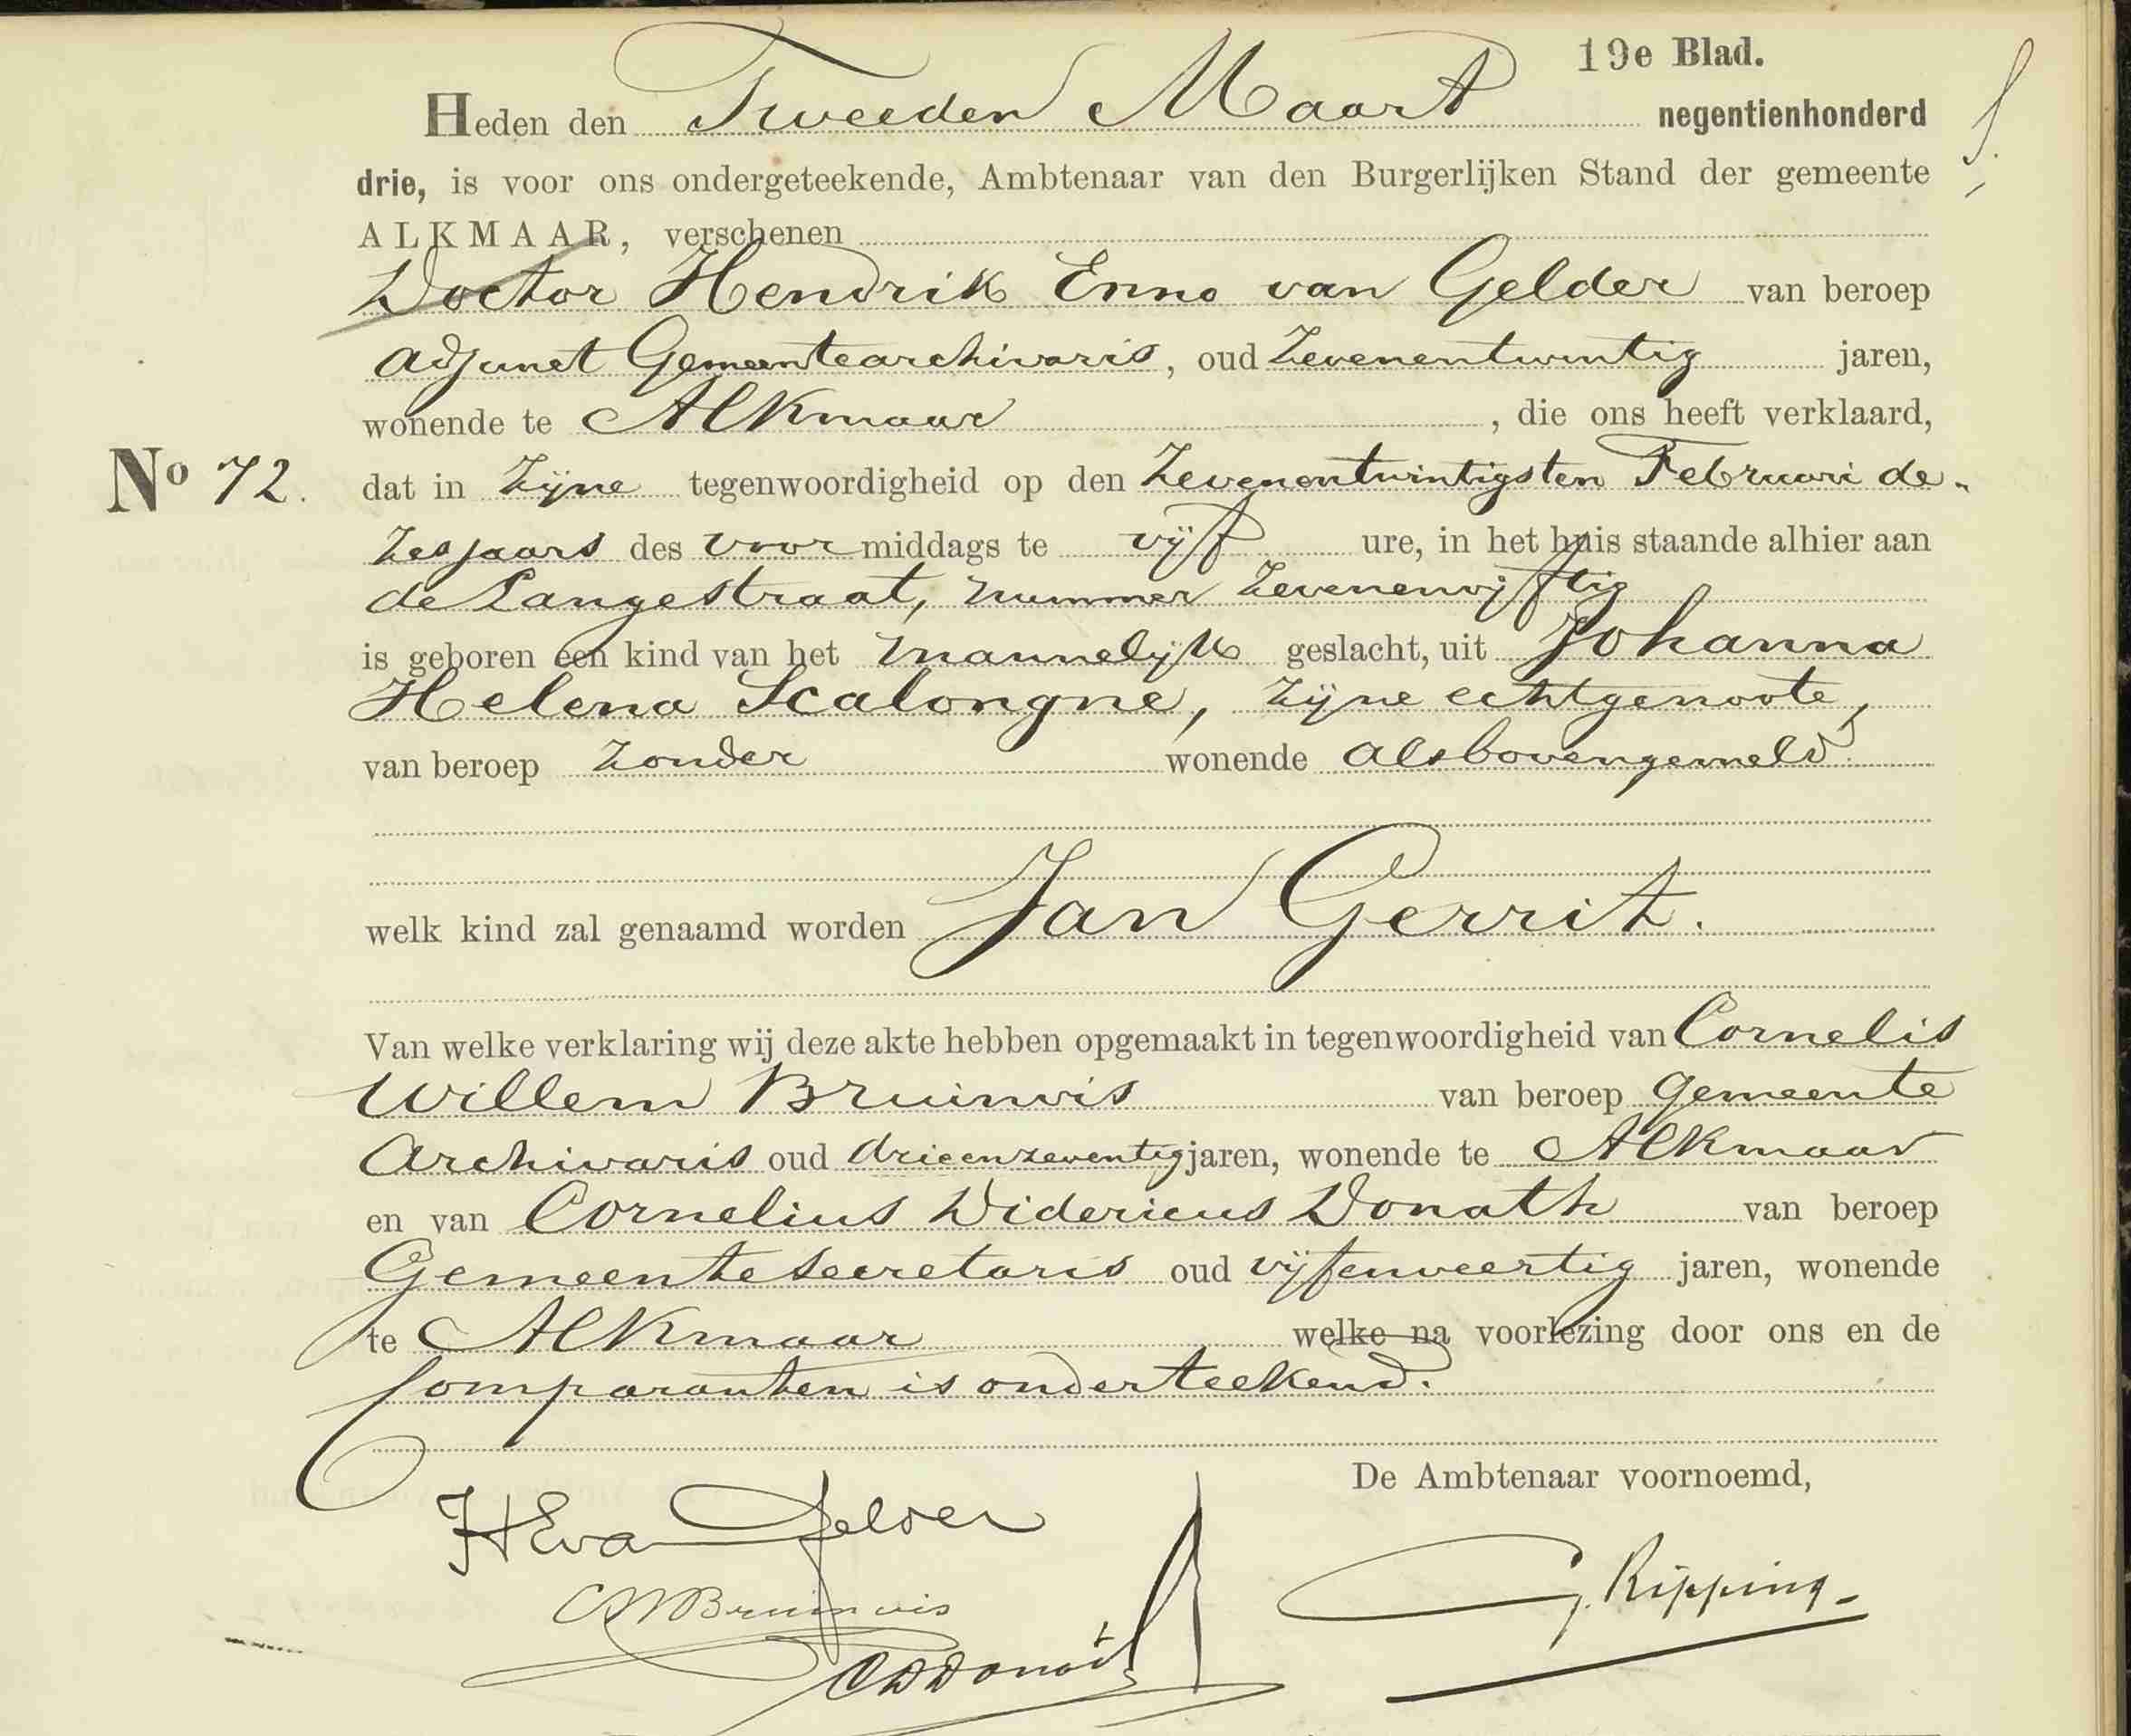 19e Blad.
Heden den Tweeden Maart negentienhonderd
drie, is voor ons ondergeteekende, Ambtenaar van den Burgerlijken Stand der gemeente
ALKMAAR, verschenen
Doctor Hendrik Enno van Gelder van beroep
adjunct Gemeentearchivaris, oud Zevenentwintig jaren,
wonende te Alkmaar, die ons heeft verklaard,
No 72. dat in Zijne tegenwoordigheid op den Zevenentwintigsten Februari de-
zes jaars des voor middags te vijf ure, in het huis staande alhier aan
de Langestraat, nummer Zevenenvijftig
is geboren een kind van het mannelijk geslacht, uit Johanna
Helena Scalongne, zijne echtgenoote,
van beroep zonder wonende alsbovengemeld.
welk kind zal genaamd worden Jan Gerrit.
Van welke verklaring wij deze akte hebben opgemaakt in tegenwoordigheid van Cornelis
Willem Bruinvis van beroep Gemeente
Archivaris oud drieenzeventig jaren, wonende te Alkmaar
en van Cornelius Didericus Donath van beroep
Gemeentesecretaris oud vijfenveertig jaren, wonende
te Alkmaar welke na voorlezing door ons en de
Comparanten is onderteekend.
De Ambtenaar voornoemd,
HEvanGelder
CWBruinvis
CDDonath
G. Ripping